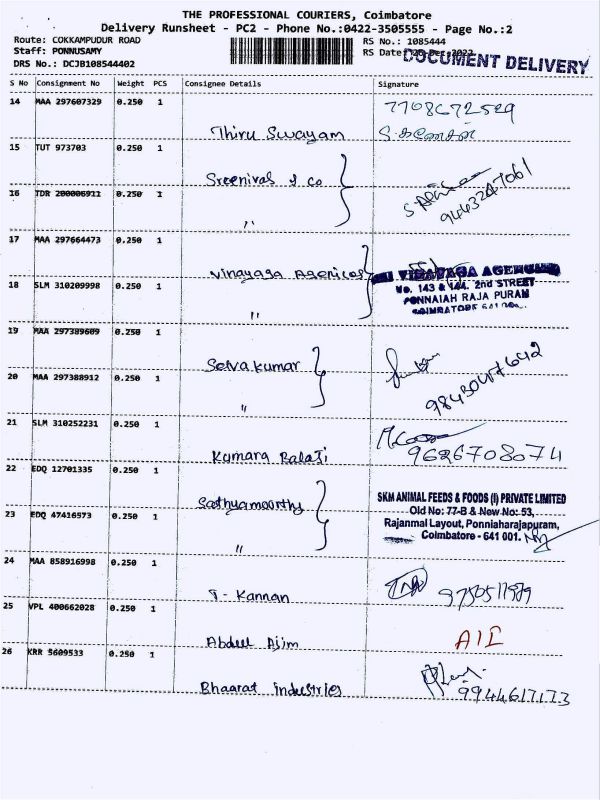 THE PROFESSIONAL COURIERS, Coimbatore
Delivery Runsheet - PC2 - Phone No.:0422-3505555 - Page No.:2
Route: COKKAMPUDUR ROAD RS No.: 1085444
Staff: PONNUSAMY RS Date: Dec-2022
DRS No.: DCJB108544402 DOCUMENT DELIVERY
S No Consignment No Weight PCS Consignee Details Signature
14 MAA 297607329 0.250 1 7708672529
Thiru Swayam
15 TUT 973703 0.250 1
Sreenivas & co 9443247061
16 TDR 200006911 0.250 1
"
17 MAA 297664473 0.250 1
Vinayaga Agenices VINAYAGA AGENCIES
18 SLM 310209998 0.250 1 No. 143 & 144. 2nd STREET
" PONNAIAH RAJA PURAM
COIMBATORE
19 MAA 297389609 0.250 1
Selvakumar
20 MAA 297388912 0.250 1 9843047642
"
21 SLM 310252231 0.250 1
Kumara Balaji 9626708074
22 EDQ 12701335 0.250 1
Sathyamoorthy SKM ANIMAL FEEDS & FOODS (I) PRIVATE LIMITED
Old No: 77-B & New No: 53,
23 EDQ 47416573 0.250 1 Rajanmal Layout, Ponniaharajapuram,
" Coimbatore - 641 001.
24 MAA 858916998 0.250 1
T- Kannan
25 VPL 400662028 0.250 1
Abdul Ajim
26 KRR 5609533 0.250 1
Bhaarat industries 9944617173